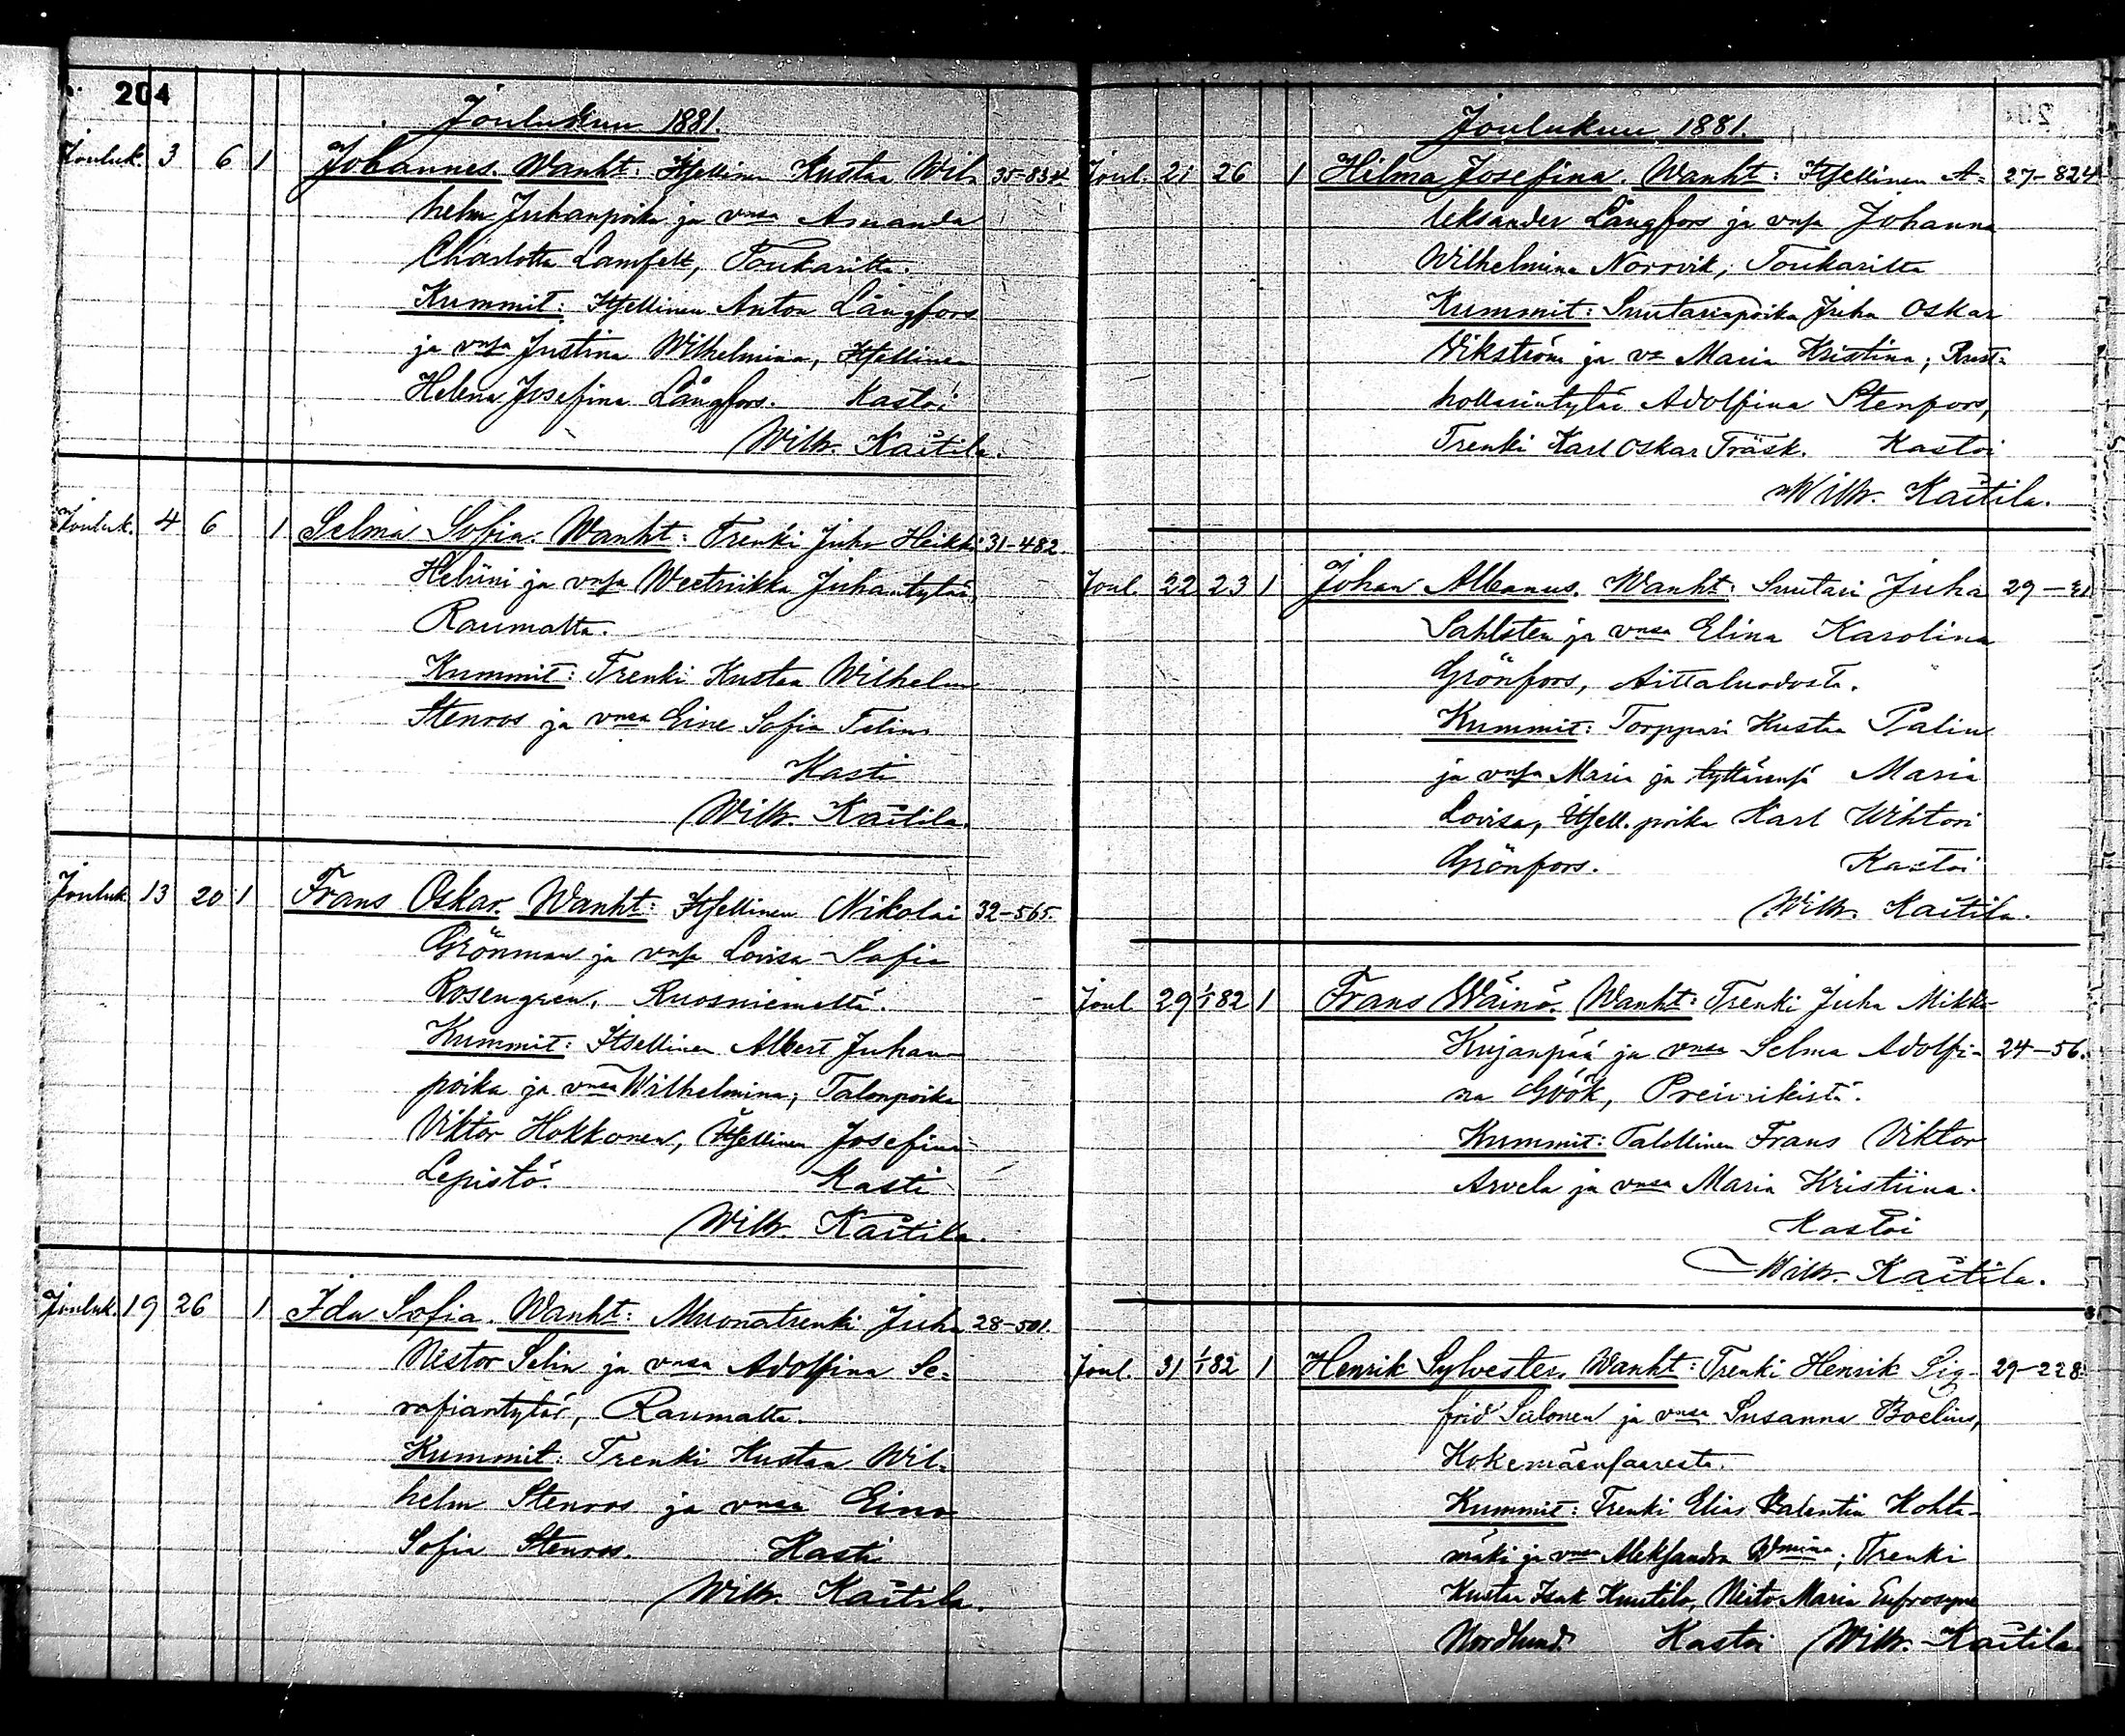 204
Joulukuu 1881.
Jouluk. 3 6 1 Johannes. Wanht: Itsellinen Kustaa Wil- 35-834.
helm Juhanpoika ja vnsa Amanda
Charlotta Lamfelt, Toukarilta.
Kummit: Itsellinen Anton Långfors
ja vnsa Justina Wilhelmina, Itsellinen
Helena Josefina Långfors. Kastoi
Wilh. Kaitila.
Jouluk. 4 6 1 Selma Sofia. Wanht: Trenki Juho Heikki 31-482.
ja vnsa Weetriikka Juhantytär,
Raumalta.
Kummit: Trenki Kustaa Wilhelm
Stenroos ja vnsa Eine Sofia
Kasti
Wilh. Kaitila.
Jouluk. 13 20 1 Frans Oskar. Wanht: Itsellinen Nikolai 32-565.
Grönman ja vnsa Lovisa Sofia
Rosengren, Ruosniemeltä.
Kummit: Itsellinen Albert Juhan-
poika ja vnsa Wilhelmina, Talonpoika
Viktor Hokkonen, Itsellinen Josefina
Lepistö. Kasti
Wilh. Kaitila.
Jouluk. 19 26 1 Ida Sofia. Wanht: Muonatrenki Juha 28-501.
Nestor Selin ja vnsa Adolfina Se-
rafiantytär, Raumalta.
Kummit: Trenki Kustaa Wil-
helm Stenroos ja vnsa Eine
Sofia Stenroos. Kasti
Wilh. Kaitila.
Joulukuu 1881.
Joul. 21 26 1 Hilma Josefina. Wanht: Itsellinen A- 27-824
leksander Långfors ja vnsa Johanna
Wilhelmina Norrvik, Toukarilta
Kummit: Suutarinpoika Juha Oskar
Vikström ja vz Maria Kristina; Rust-
hollarintytär Adolfina Stenfors,
Trenki Karl Oskar Träsk. Kastoi
Wilh. Kaitila.
Joul. 22 23 1 Johan Albanus. Wanht: Suutari Juha 29-
Sahlsten ja vnsa Elina Karolina
Grönfors, Aittaluodosta.
Kummit: Torppari Kustaa Palin
ja vnsa Maria ja tyttärensä Maria
Lovisa, Itsell. poika Karl Wihtori
Grönfors. Kastoi
Wilh. Kaitila.
Joul. 29 1/1 82 1 Frans Wäinö. Wanht: Trenki Juha Mikko
Kujanpää ja vnsa Selma Adolfi- 24-56.
na Göök, Preiviikistä.
Kummit: Talollinen Frans Viktor
Arvela ja vnsa Maria Kristiina.
Kastoi
Wilh. Kaitila.
Joul. 31 1/1 82 1 Henrik Sylvester. Wanht: Trenki Henrik Sig- 29-228.
frid Salonen ja vnsa Susanna Boelius,
Kokemäensaaresta.
Kummit: Trenki Elias Valentin Kohta-
mäki ja vnsa Aleksandra Wmina; Trenki
Kustaa Isak Knutila, Neito Maria Eufrosyne
Nordlund. Kastoi Wilh. Kaitila